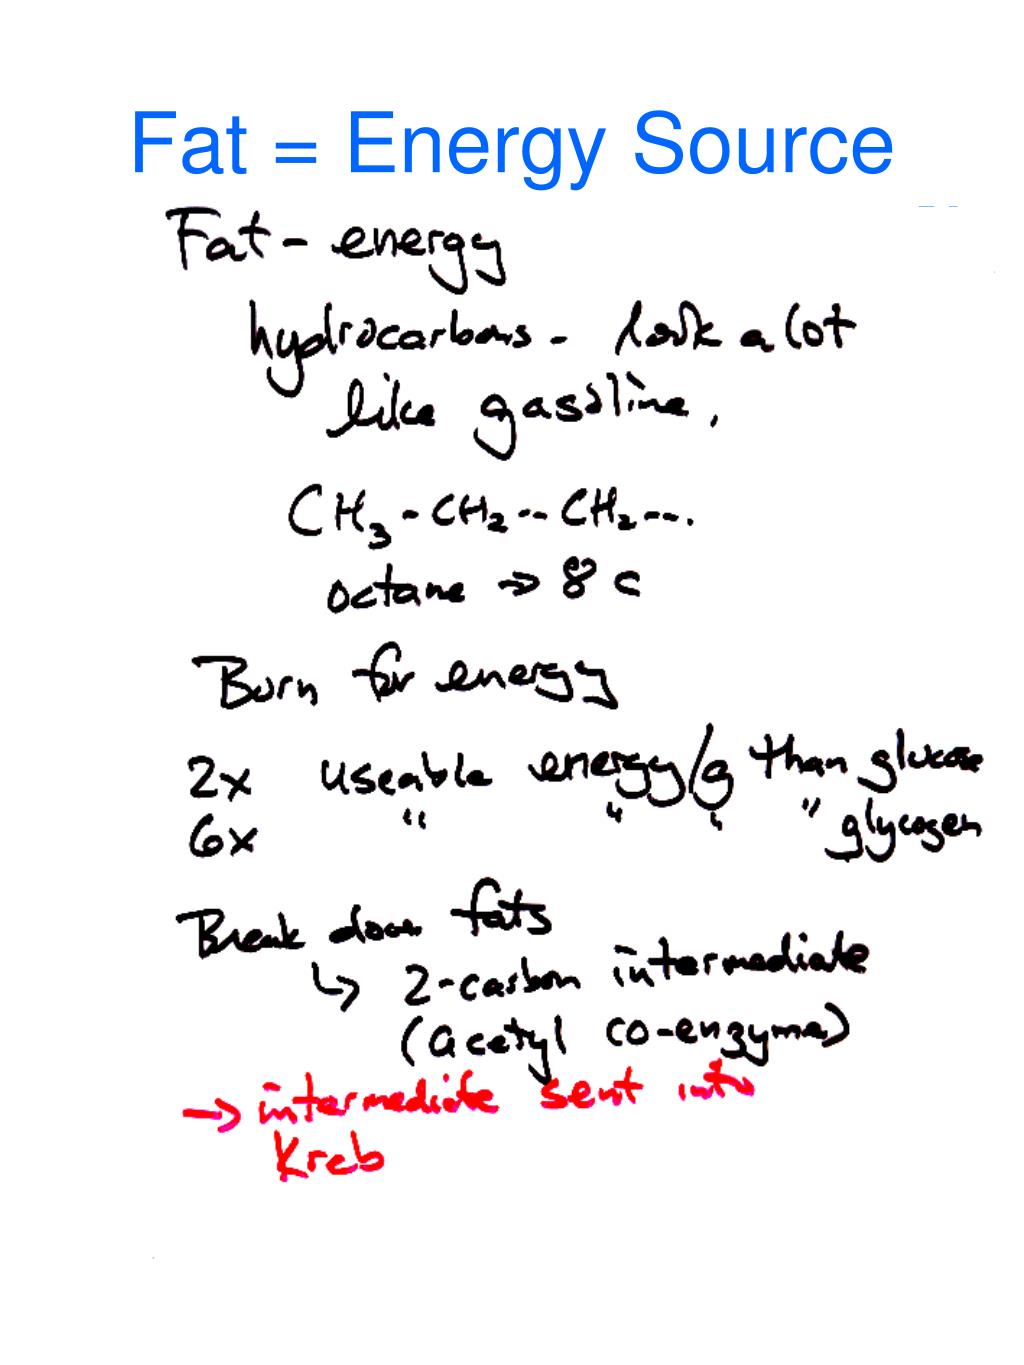 Fat = Energy Source
Fat - energy
hydrocarbons - look a lot
like gasoline.
CH₃ - CH₂ -- CH₂ ---.
octane → 8 c
Burn for energy
2x useable energy/g than glucose
6x " " " " glycogen
Break down fats
↳ 2-carbon intermediate
(acetyl co-enzyme)
→ intermediate sent into
Kreb